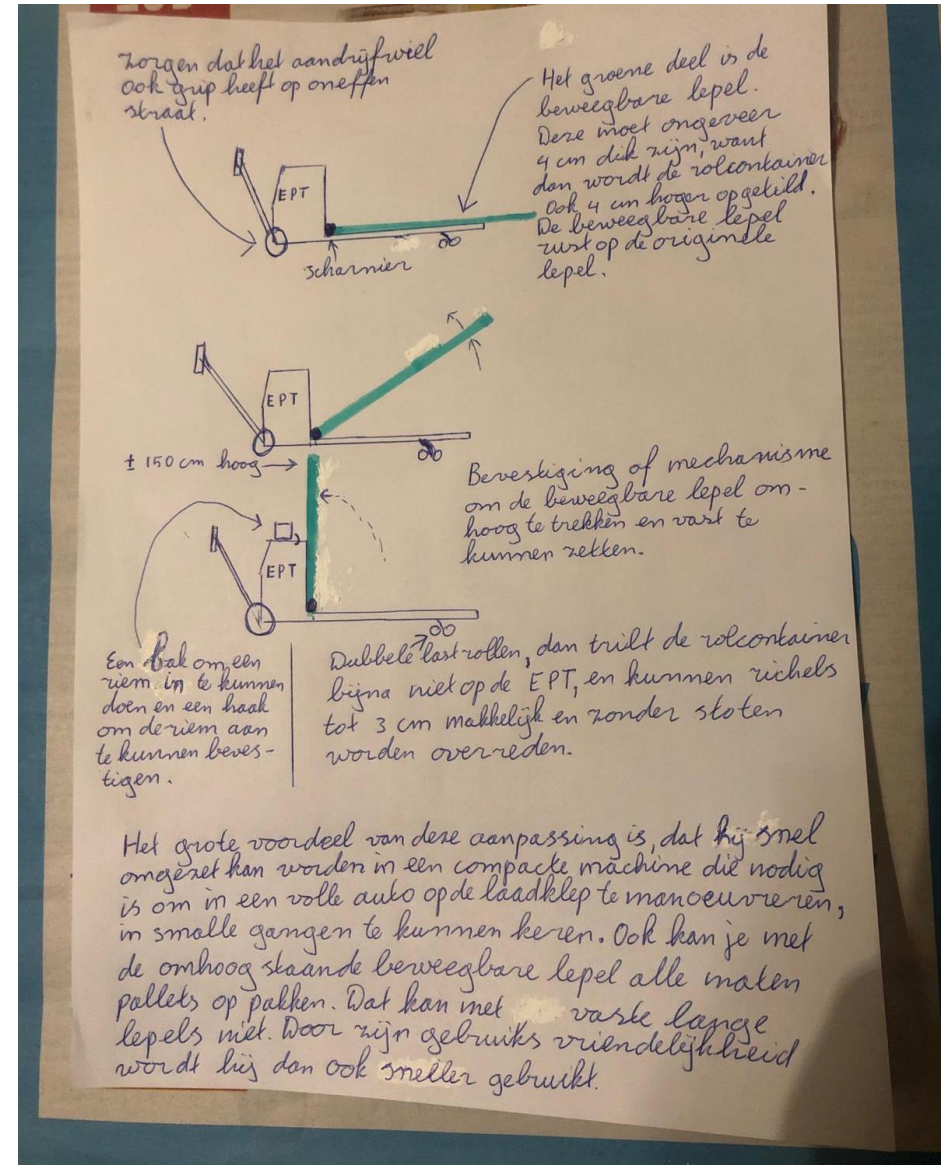 Zorgen dat het aandrijfwiel
ook grip heeft op oneffen
straat.
Het groene deel is de
beweegbare lepel.
Deze moet ongeveer
4 cm dik zijn, want
dan wordt de rolcontainer
ook 4 cm hoger opgetild.
De beweegbare lepel
rust op de originele
lepel.
EPT
scharnier
EPT
± 150 cm hoog
Bevestiging of mechanisme
om de beweegbare lepel om-
hoog te trekken en vast te
kunnen zetten.
EPT
Een bak om een
riem in te kunnen
doen en een haak
om de riem aan
te kunnen beves-
tigen.
Dubbele lastrollen, dan trilt de rolcontainer
bijna niet op de EPT, en kunnen richels
tot 3 cm makkelijk en zonder stoten
worden overreden.
Het grote voordeel van deze aanpassing is, dat hij snel
omgezet kan worden in een compacte machine die nodig
is om in een volle auto op de laadklep te manoeuvreren,
in smalle gangen te kunnen keren. Ook kan je met
de omhoog staande beweegbare lepel alle maten
pallets op pakken. Dat kan met vaste lange
lepels niet. Door zijn gebruiks vriendelijkheid
wordt hij dan ook sneller gebruikt.